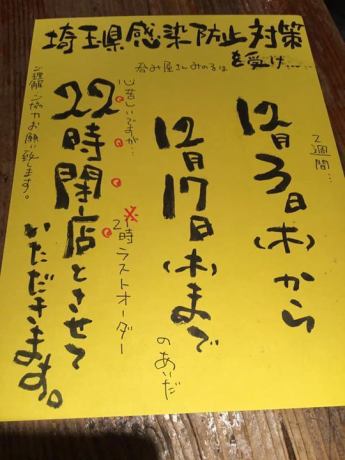 埼玉県感染防止対策
を受け……
呑み屋さんみのるは
2週間…
12月3日(木)から
12月17日(木)まで
のあいだ
21時ラストオーダー
心苦しいですが…
22時閉店とさせて
いただきます。
ご理解・ご協力お願い致します。